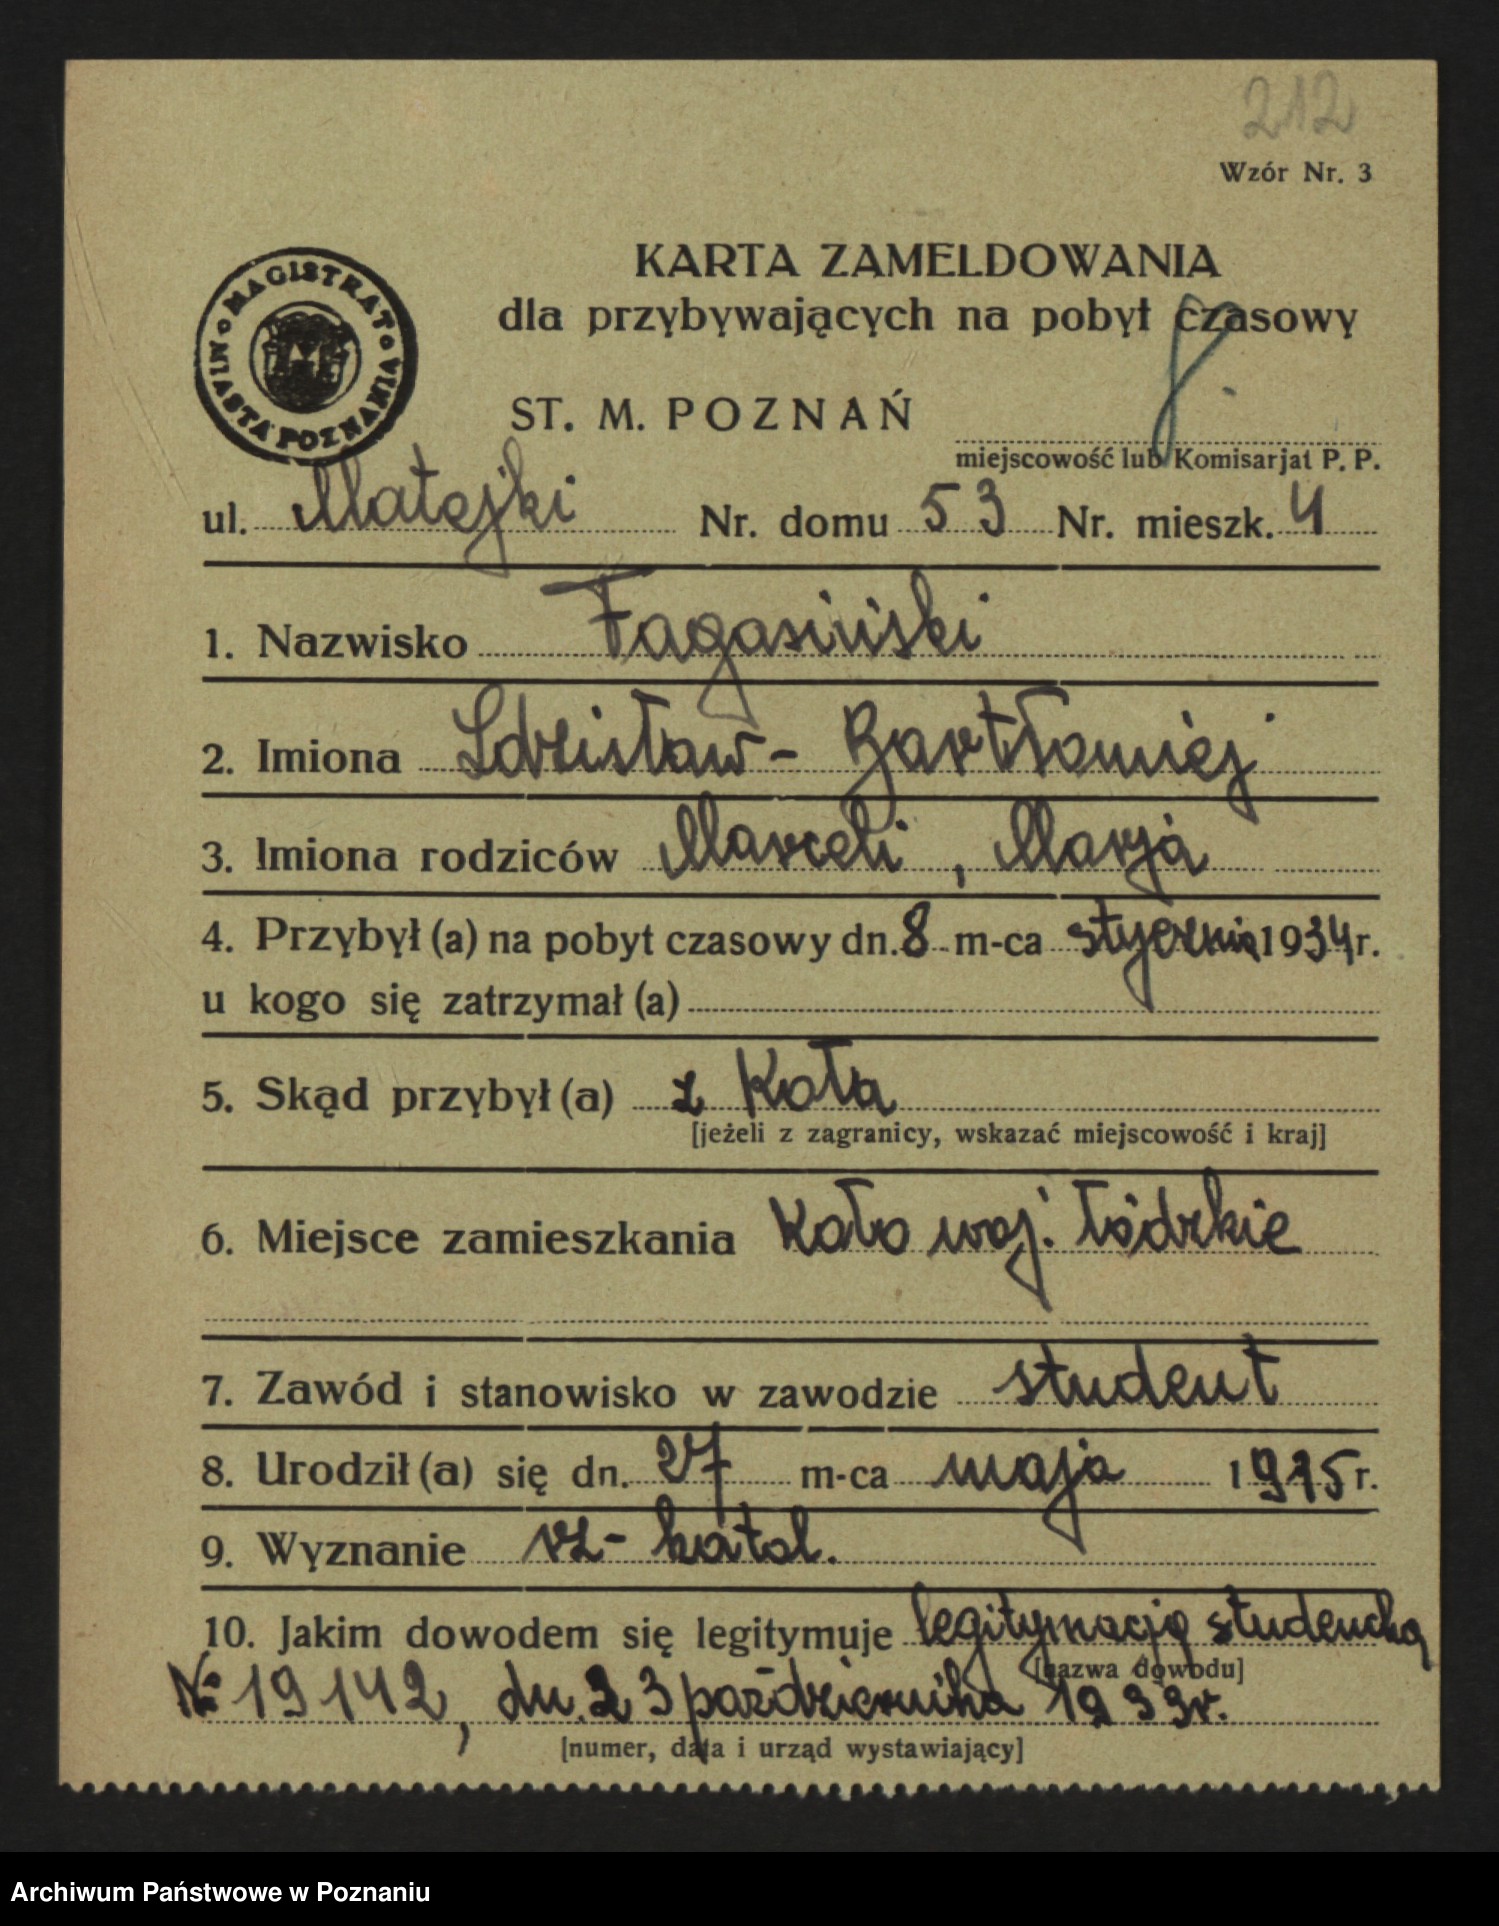 212
Wzór Nr. 3
KARTA ZAMELDOWANIA
dla przybywających na pobyt czasowy
MAGISTRAT MIASTA POZNANIA
ST. M. POZNAŃ
miejscowość lub Komisarjat P. P.
ul. Matejki Nr. domu 53 Nr. mieszk. 4
1. Nazwisko Fagasiński
2. Imiona Zdzisław - Bartłomiej
3. Imiona rodziców Marceli, Marja
4. Przybył (a) na pobyt czasowy dn. 8 m-ca stycznia 1934 r.
u kogo się zatrzymał (a)
5. Skąd przybył (a) z Koła
[jeżeli z zagranicy, wskazać miejscowość i kraj]
6. Miejsce zamieszkania Koło woj. łódzkie
7. Zawód i stanowisko w zawodzie student
8. Urodził (a) się dn. 27 m-ca maja 1915 r.
9. Wyznanie rz-katol.
10. Jakim dowodem się legitymuje legitymacją studencką
[nazwa dowodu]
№ 19142, dn. 23 października 1933r.
[numer, data i urząd wystawiający]
Archiwum Państwowe w Poznaniu